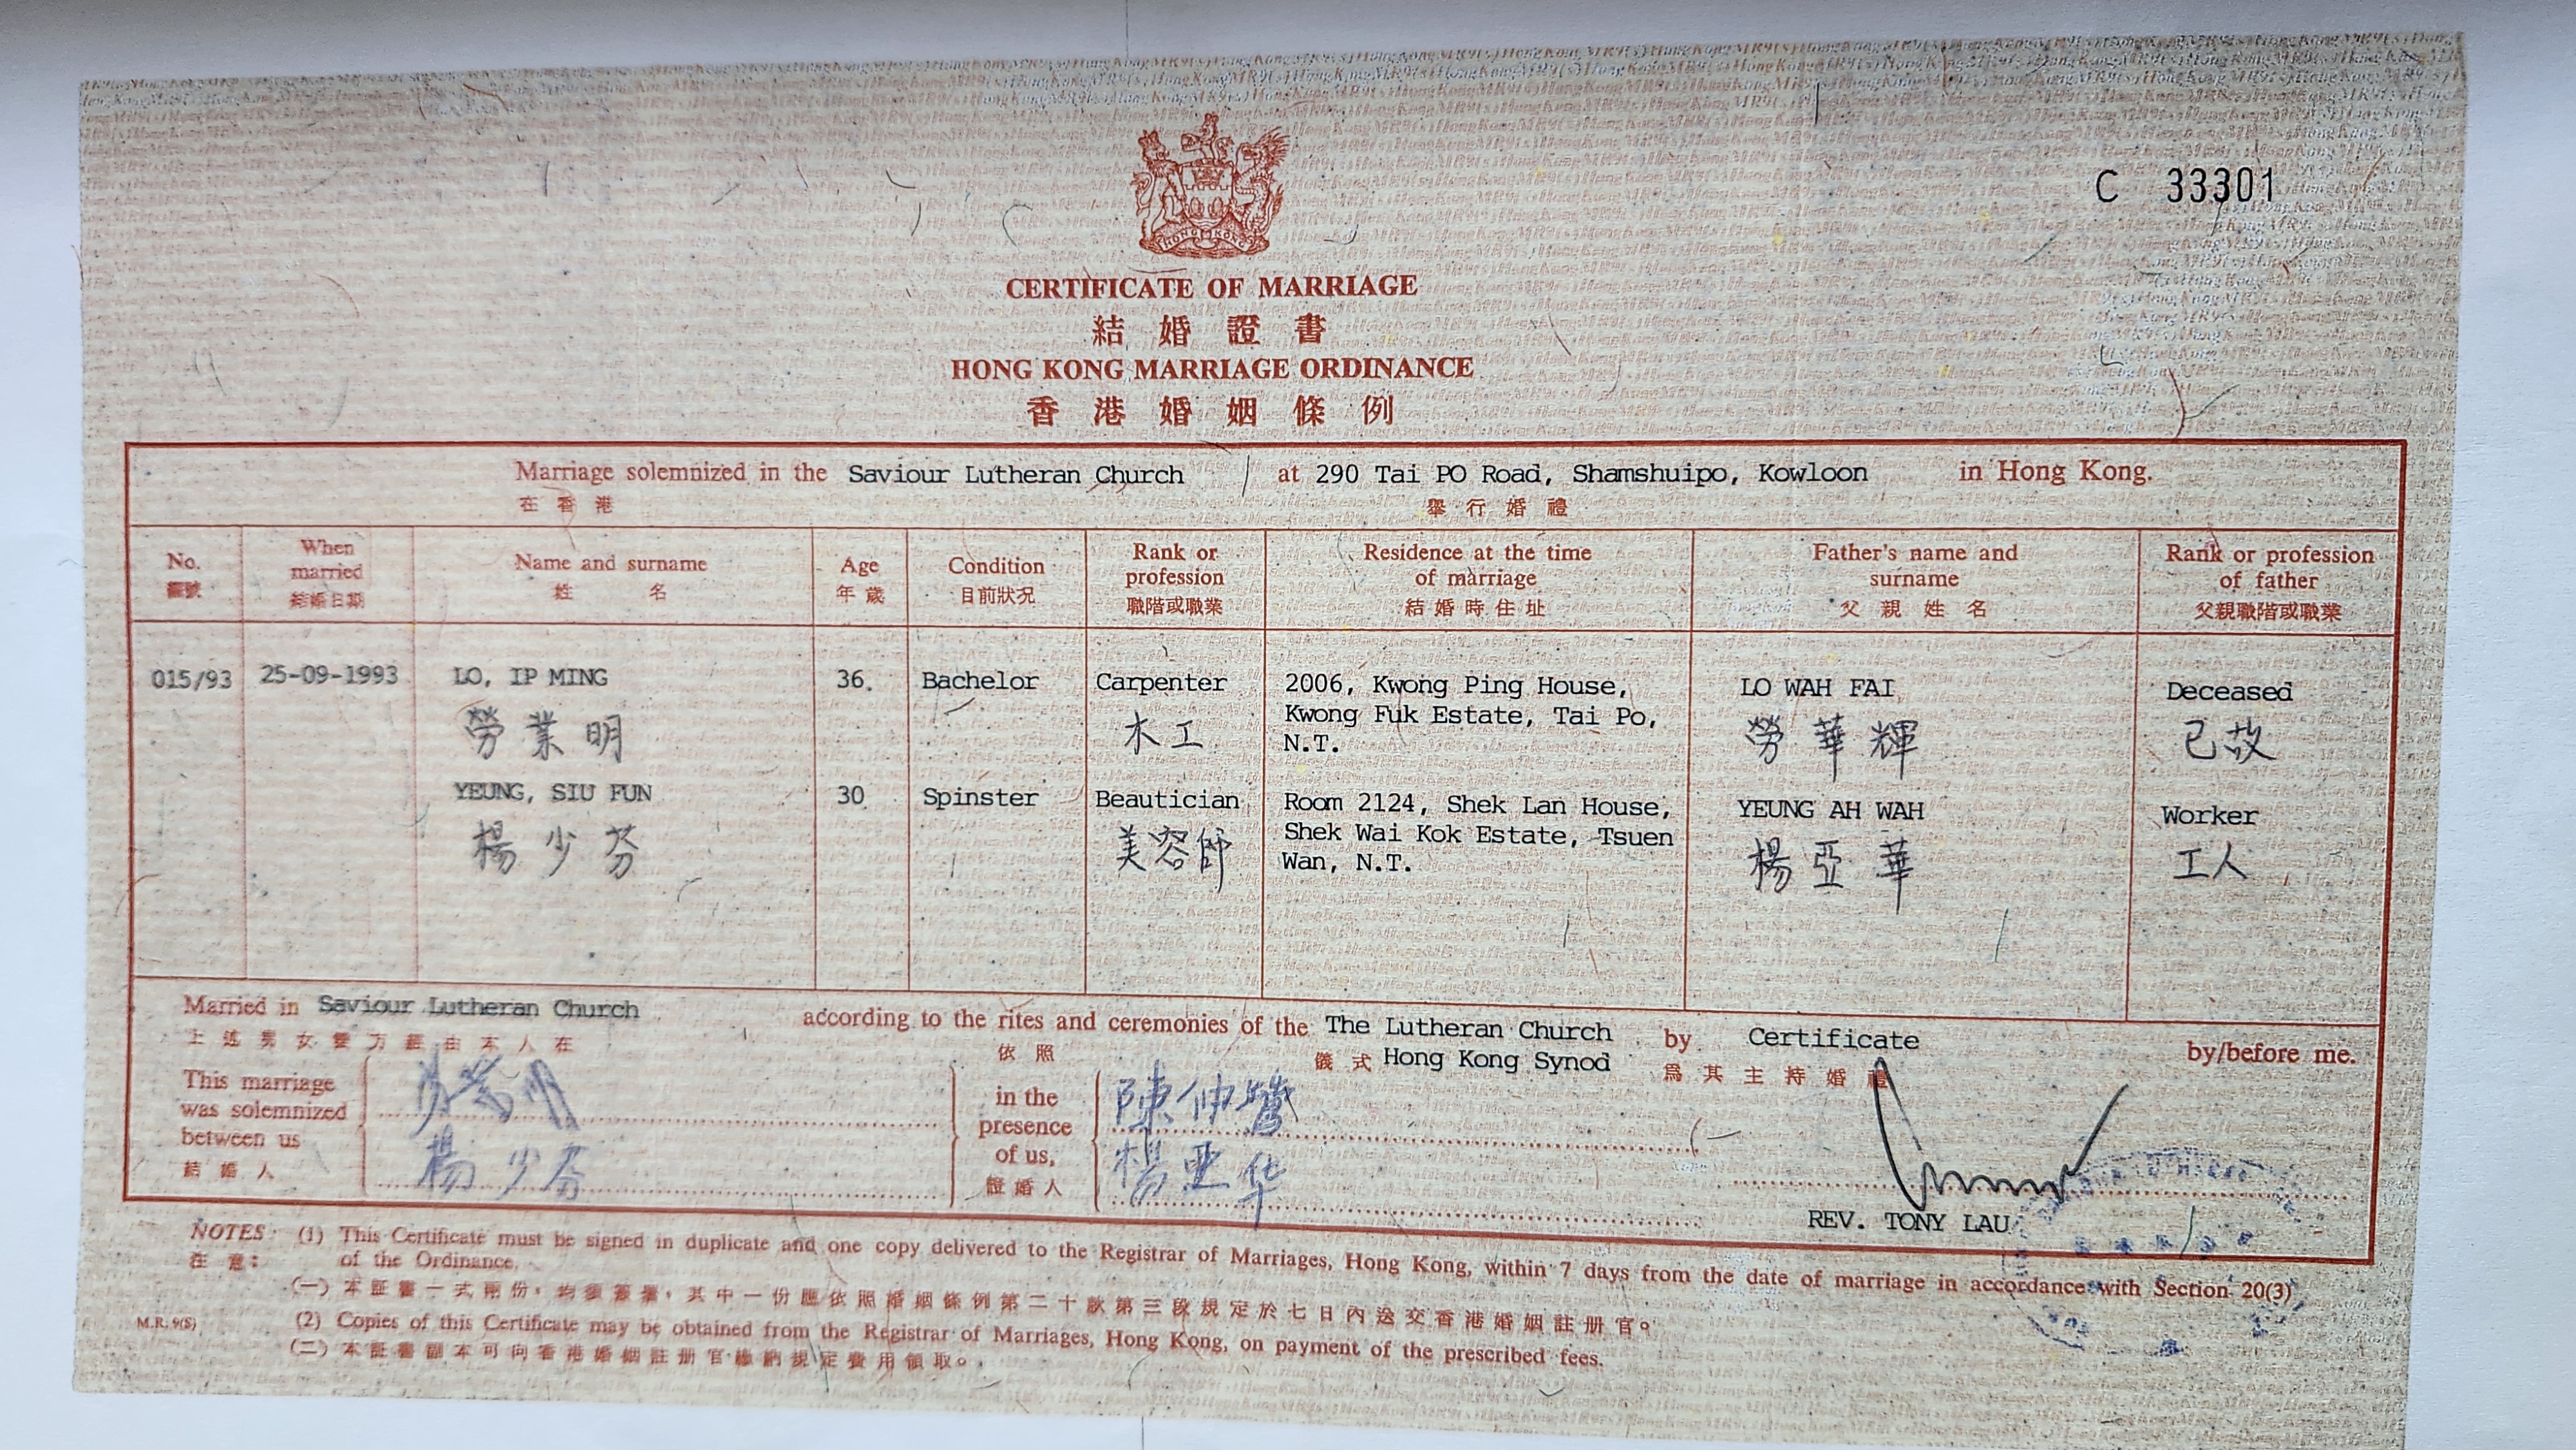 HONG KONG
C 33301
CERTIFICATE OF MARRIAGE
結婚證書
HONG KONG MARRIAGE ORDINANCE
香港婚姻條例
Marriage solemnized in the Saviour Lutheran Church at 290 Tai PO Road, Shamshuipo, Kowloon in Hong Kong.
在香港 舉行婚禮
No. 編號
When married 結婚日期
Name and surname 姓名
Age 年歲
Condition 目前狀況
Rank or profession 職階或職業
Residence at the time of marriage 結婚時住址
Father's name and surname 父親姓名
Rank or profession of father 父親職階或職業
015/93 25-09-1993 LO, IP MING 36. Bachelor Carpenter 2006, Kwong Ping House, Kwong Fuk Estate, Tai Po, N.T. LO WAH FAI Deceased
勞業明 木工 勞華輝 已故
YEUNG, SIU FUN 30 Spinster Beautician Room 2124, Shek Lan House, Shek Wai Kok Estate, Tsuen Wan, N.T. YEUNG AH WAH Worker
楊少芬 美容師 楊亞華 工人
Married in Saviour Lutheran Church according to the rites and ceremonies of the The Lutheran Church Hong Kong Synod by Certificate by/before me.
上述男女雙方經由本人在 依照 儀式 為其主持婚禮
This marriage was solemnized between us
結婚人
勞業明
楊少芬
in the presence of us,
證婚人
陳仲鶯
楊亚华
REV. TONY LAU
NOTES: (1) This Certificate must be signed in duplicate and one copy delivered to the Registrar of Marriages, Hong Kong, within 7 days from the date of marriage in accordance with Section 20(3)
注意: of the Ordinance.
(一) 本証書一式兩份,均須簽署,其中一份應依照婚姻條例第二十款第三段規定於七日內送交香港婚姻註册官。
M.R. 9(S) (2) Copies of this Certificate may be obtained from the Registrar of Marriages, Hong Kong, on payment of the prescribed fees.
(二) 本証書副本可向香港婚姻註册官繳納規定費用領取。